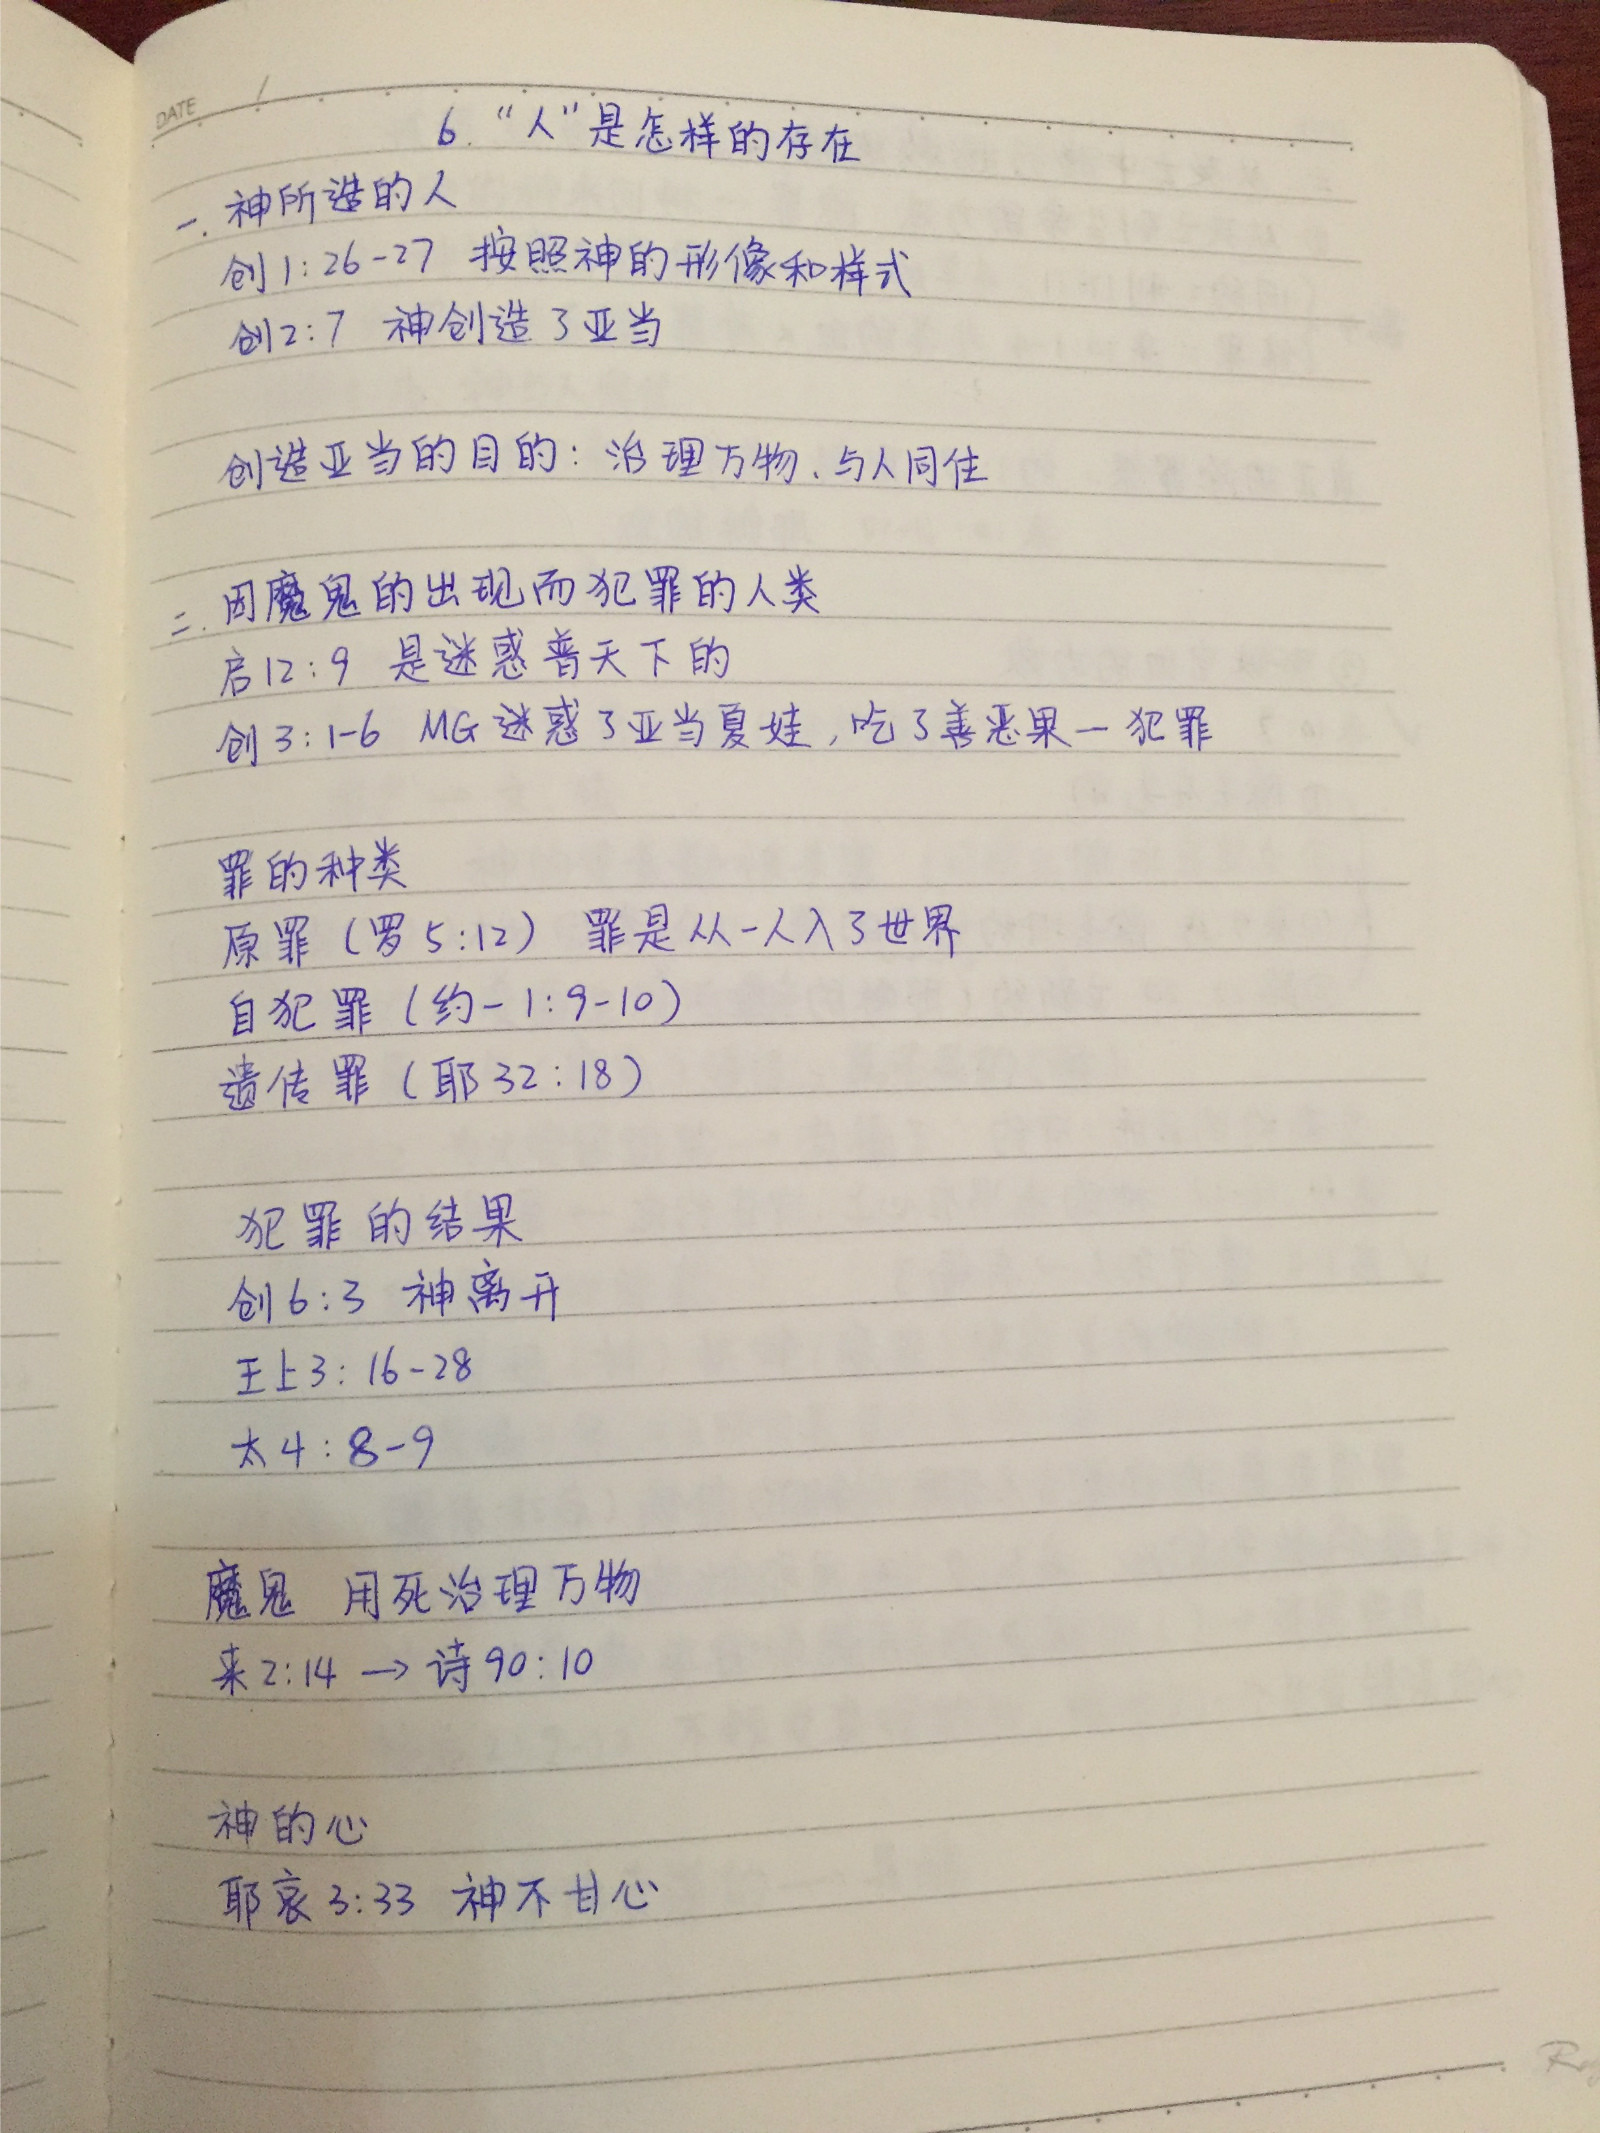 DATE /
6. “人”是怎样的存在
一. 神所造的人
创1:26-27 按照神的形像和样式
创2:7 神创造了亚当
创造亚当的目的: 治理万物、与人同住
二. 因魔鬼的出现而犯罪的人类
启12:9 是迷惑普天下的
创3:1-6 MG迷惑了亚当夏娃,吃了善恶果—犯罪
罪的种类
原罪(罗5:12) 罪是从一人入了世界
自犯罪(约一1:9-10)
遗传罪(耶32:18)
犯罪的结果
创6:3 神离开
王上3:16-28
太4:8-9
魔鬼 用死治理万物
来2:14→诗90:10
神的心
耶哀3:33 神不甘心